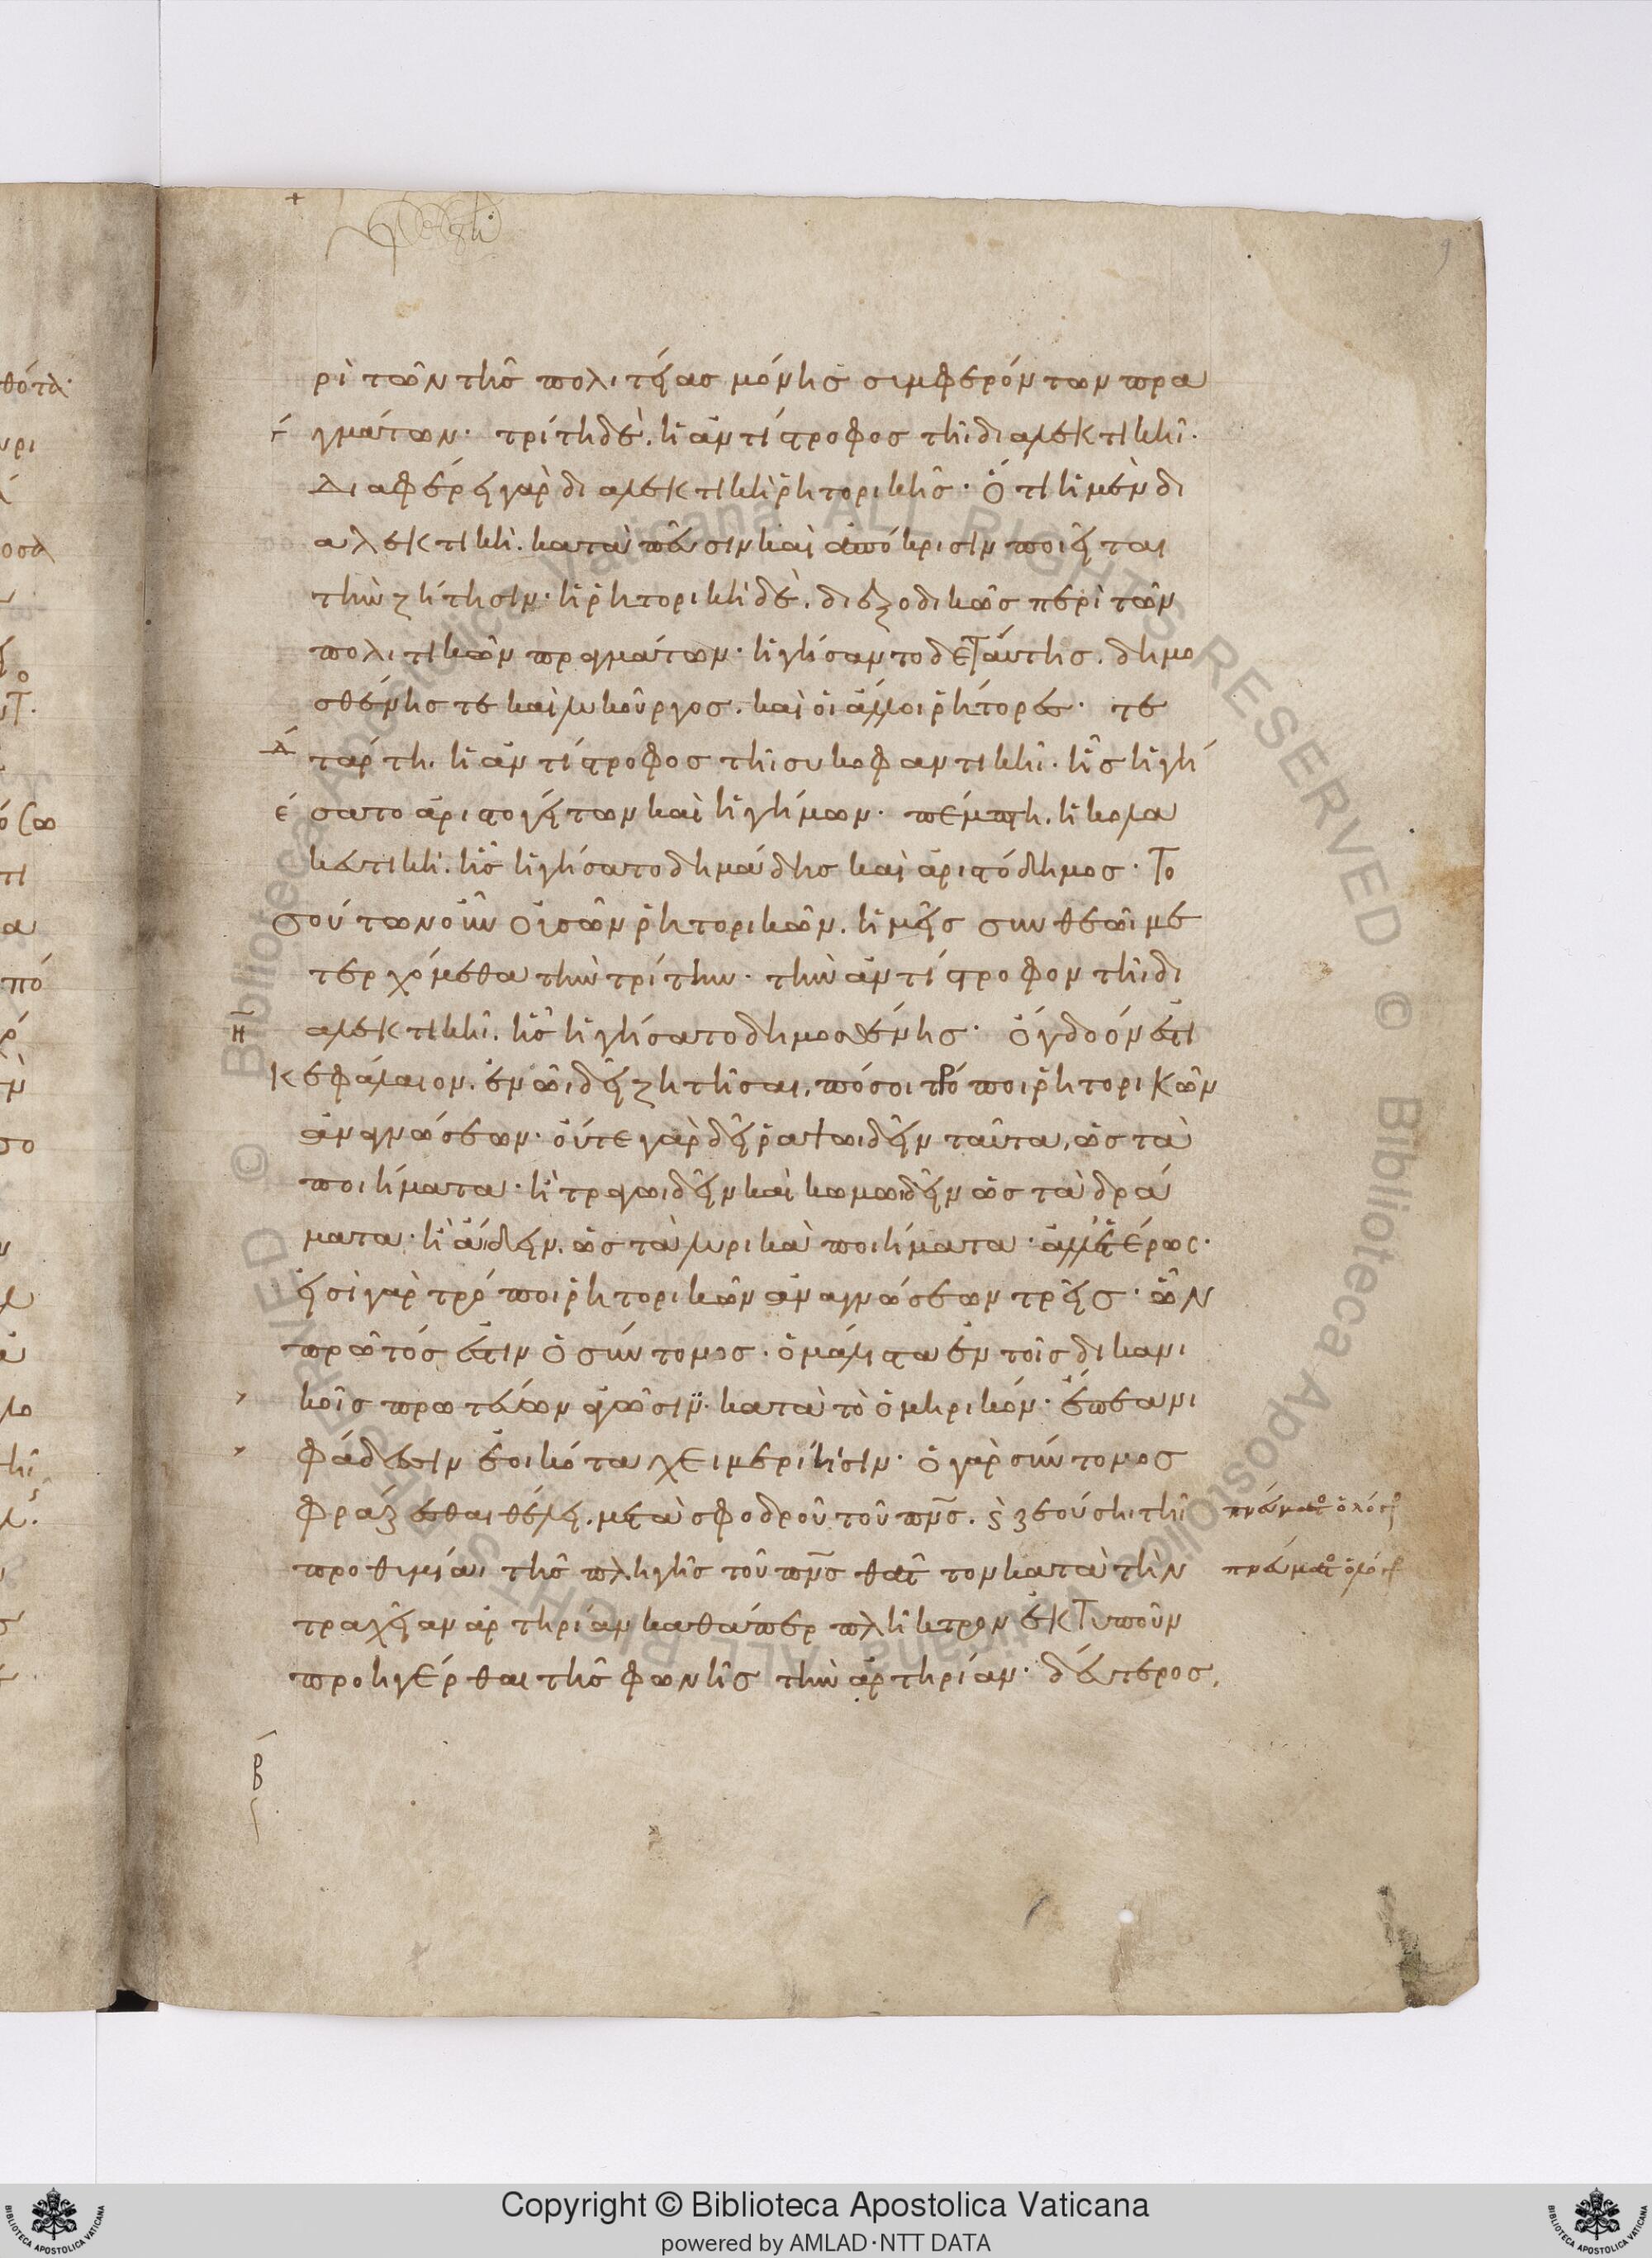 ρὶ τῶν τῆς πολιτείας μόνης συμφερόντων πρα
γ γμάτων· τρίτη δὲ. ἡ ἀντίστροφος τῆι διαλεκτικῆι·
Διαφέρει γὰρ διαλεκτικὴ ῥητορικῆς· ὅτι ἡ μὲν δι
αλεκτικὴ. κατὰ πεῦσιν καὶ ἀπόκρισιν ποιεῖται
τὴν ζήτησιν· ἡ ῥητορικὴ δὲ. διεξοδικῶς περὶ τῶν
πολιτικῶν πραγμάτων· ἡγήσαντο δὲ ταύτης. δημο
σθένης τε καὶ λυκοῦργος. καὶ οἱ ἄλλοι ῥήτορες· τε
δ τάρτη. ἡ ἀντίστροφος τῆι συκοφαντικῆι. ἧς ἡγή
ε σατο ἀριστογείτων καὶ ἡγήμων· πέμπτη. ἡ κολα
κευτική. ἧς ἡγήσατο δημάδης καὶ ἀριστόδημος· Το
σούτων οὖν οὐσῶν ῥητορικῶν. ἡμεῖς σὺν θεῶι με
τερχόμεθα τὴν τρίτην· τὴν ἀντίστροφον τῆι δι
η αλεκτικῆι. ἧς ἡγήσατο δημοσθένης· ὄγδοόν ἐστι
κεφάλαιον. ἐν ὧι δεῖ ζητῆσαι, πόσοι τρόποι ῥητορικῶν
ἀναγνώσεων· οὔτε γὰρ δεῖ ῥαψωιδεῖν ταῦτα, ὡς τὰ
ποιήματα· ἢ τραγωιδεῖν καὶ κωμωιδεῖν ὡς τὰ δρά
ματα· ἢ ἄιδειν. ὡς τὰ λυρικὰ ποιήματα· ἀλλ' ἑτέρως·
εἰσὶ γὰρ τρόποι ῥητορικῶν ἀναγνώσεων τρεῖς· ὧν
πρῶτός ἐστιν ὁ σύντομος· ὁ μάλιστα ἐν τοῖς δικανι
κοῖς πρωτεύων ἀγῶσιν· κατὰ τὸ ὁμηρικόν· ἔπεα νι
φάδεσσιν ἐοικότα χειμερίηισιν· ὁ γὰρ σύντομος
φράζεσθαι θέλει. μετὰ σφοδροῦ τοῦ πν̅ς. ϛ ζεούσηι τῆι
προθυμίαι τῆς πληγῆς τοῦ πν̅ς θατ τον κατὰ τὴν
τραχεῖαν ἀρτηρίαν καθάπερ πλῆκτρον ἐκτυποῦν
προηγεῖσθαι τῆς φωνῆς τὴν ἀρτηρίαν· δεύτερος.
β